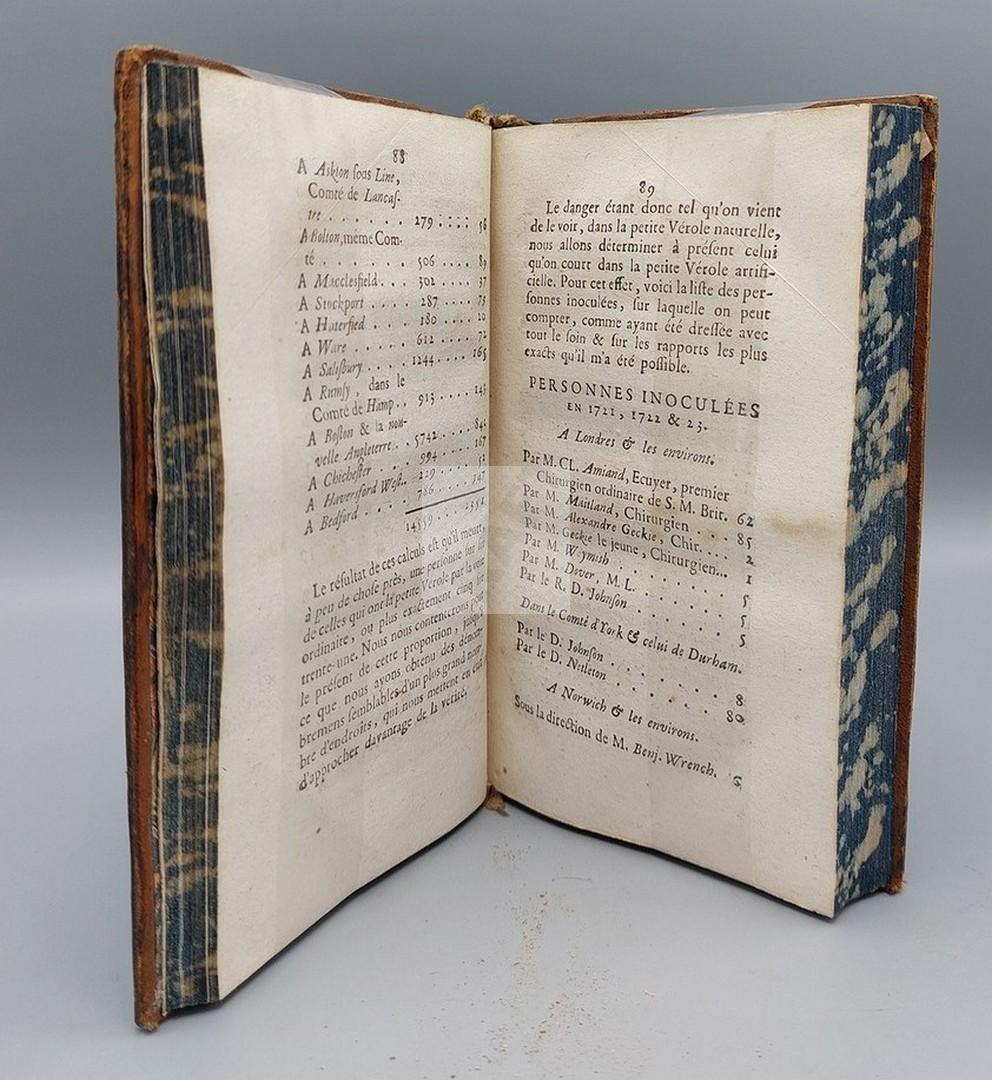 88
A Ashton ſous Line,
Comté de Lancaſ-
tre . . . . . . 279 . . . . 56
A Bolton, même Com-
té . . . . . . . 506 . . . . 89
A Macclesfield . . . 302 . . . . 37
A Stockport . . . . 287 . . . . 73
A Haterfied . . . . 180 . . . . 20
A Ware . . . . . 612 . . . . 72
A Saliſbury . . . . 1244 . . . . 165
A Rumſy, dans le
Comté de Hamp . . 913 . . . . 143
A Boſton & la nou-
velle Angleterre . . 5742 . . . . 842
A Chicheſter . . . . 994 . . . . 167
A Haverſford Weſt. . . 229 . . . .
A Bedford . . . . 786 . . . . 147
14559 . . . .
Le réſultat de ces calculs eſt qu'il meurt,
à peu de choſe près, une perſonne ſur ſix
de celles qui ont la petite Vérole par la voie
ordinaire, ou plus exactement cinq ſur
trente-une. Nous nous contenterons pour
le préſent de cette proportion, juſqu'à
ce que nous ayons obtenu des dénom-
bremens ſemblables d'un plus grand nom-
bre d'endroits, qui nous mettent en état
d'approcher davantage de la vérité.
89
Le danger étant donc tel qu'on vient
de le voir, dans la petite Vérole naturelle,
nous allons déterminer à préſent celui
qu'on court dans la petite Vérole artifi-
cielle. Pour cet effet, voici la liſte des per-
ſonnes inoculées, ſur laquelle on peut
compter, comme ayant été dreſſée avec
tout le ſoin & ſur les rapports les plus
exacts qu'il m'a été poſſible.
PERSONNES INOCULÉES
EN 1721, 1722 & 23.
A Londres & les environs.
Par M. CL. Amiand, Ecuyer, premier
Chirurgien ordinaire de S. M. Brit. 62
Par M. Maitland, Chirurgien . . . . 85
Par M. Alexandre Geckie, Chir. . . . 2
Par M. Geckie le jeune, Chirurgien... 1
Par M. Weymish . . . . . . . 5
Par M. Dover, M. L. . . . . . . 5
Par le R. D. Johnſon . . . . . . 5
Dans le Comté d'York & celui de Durham.
Par le D. Johnſon . . . . . . . 8
Par le D. Netleton . . . . . . 80
A Norwich & les environs.
Sous la direction de M. Benj. Wrench. 6